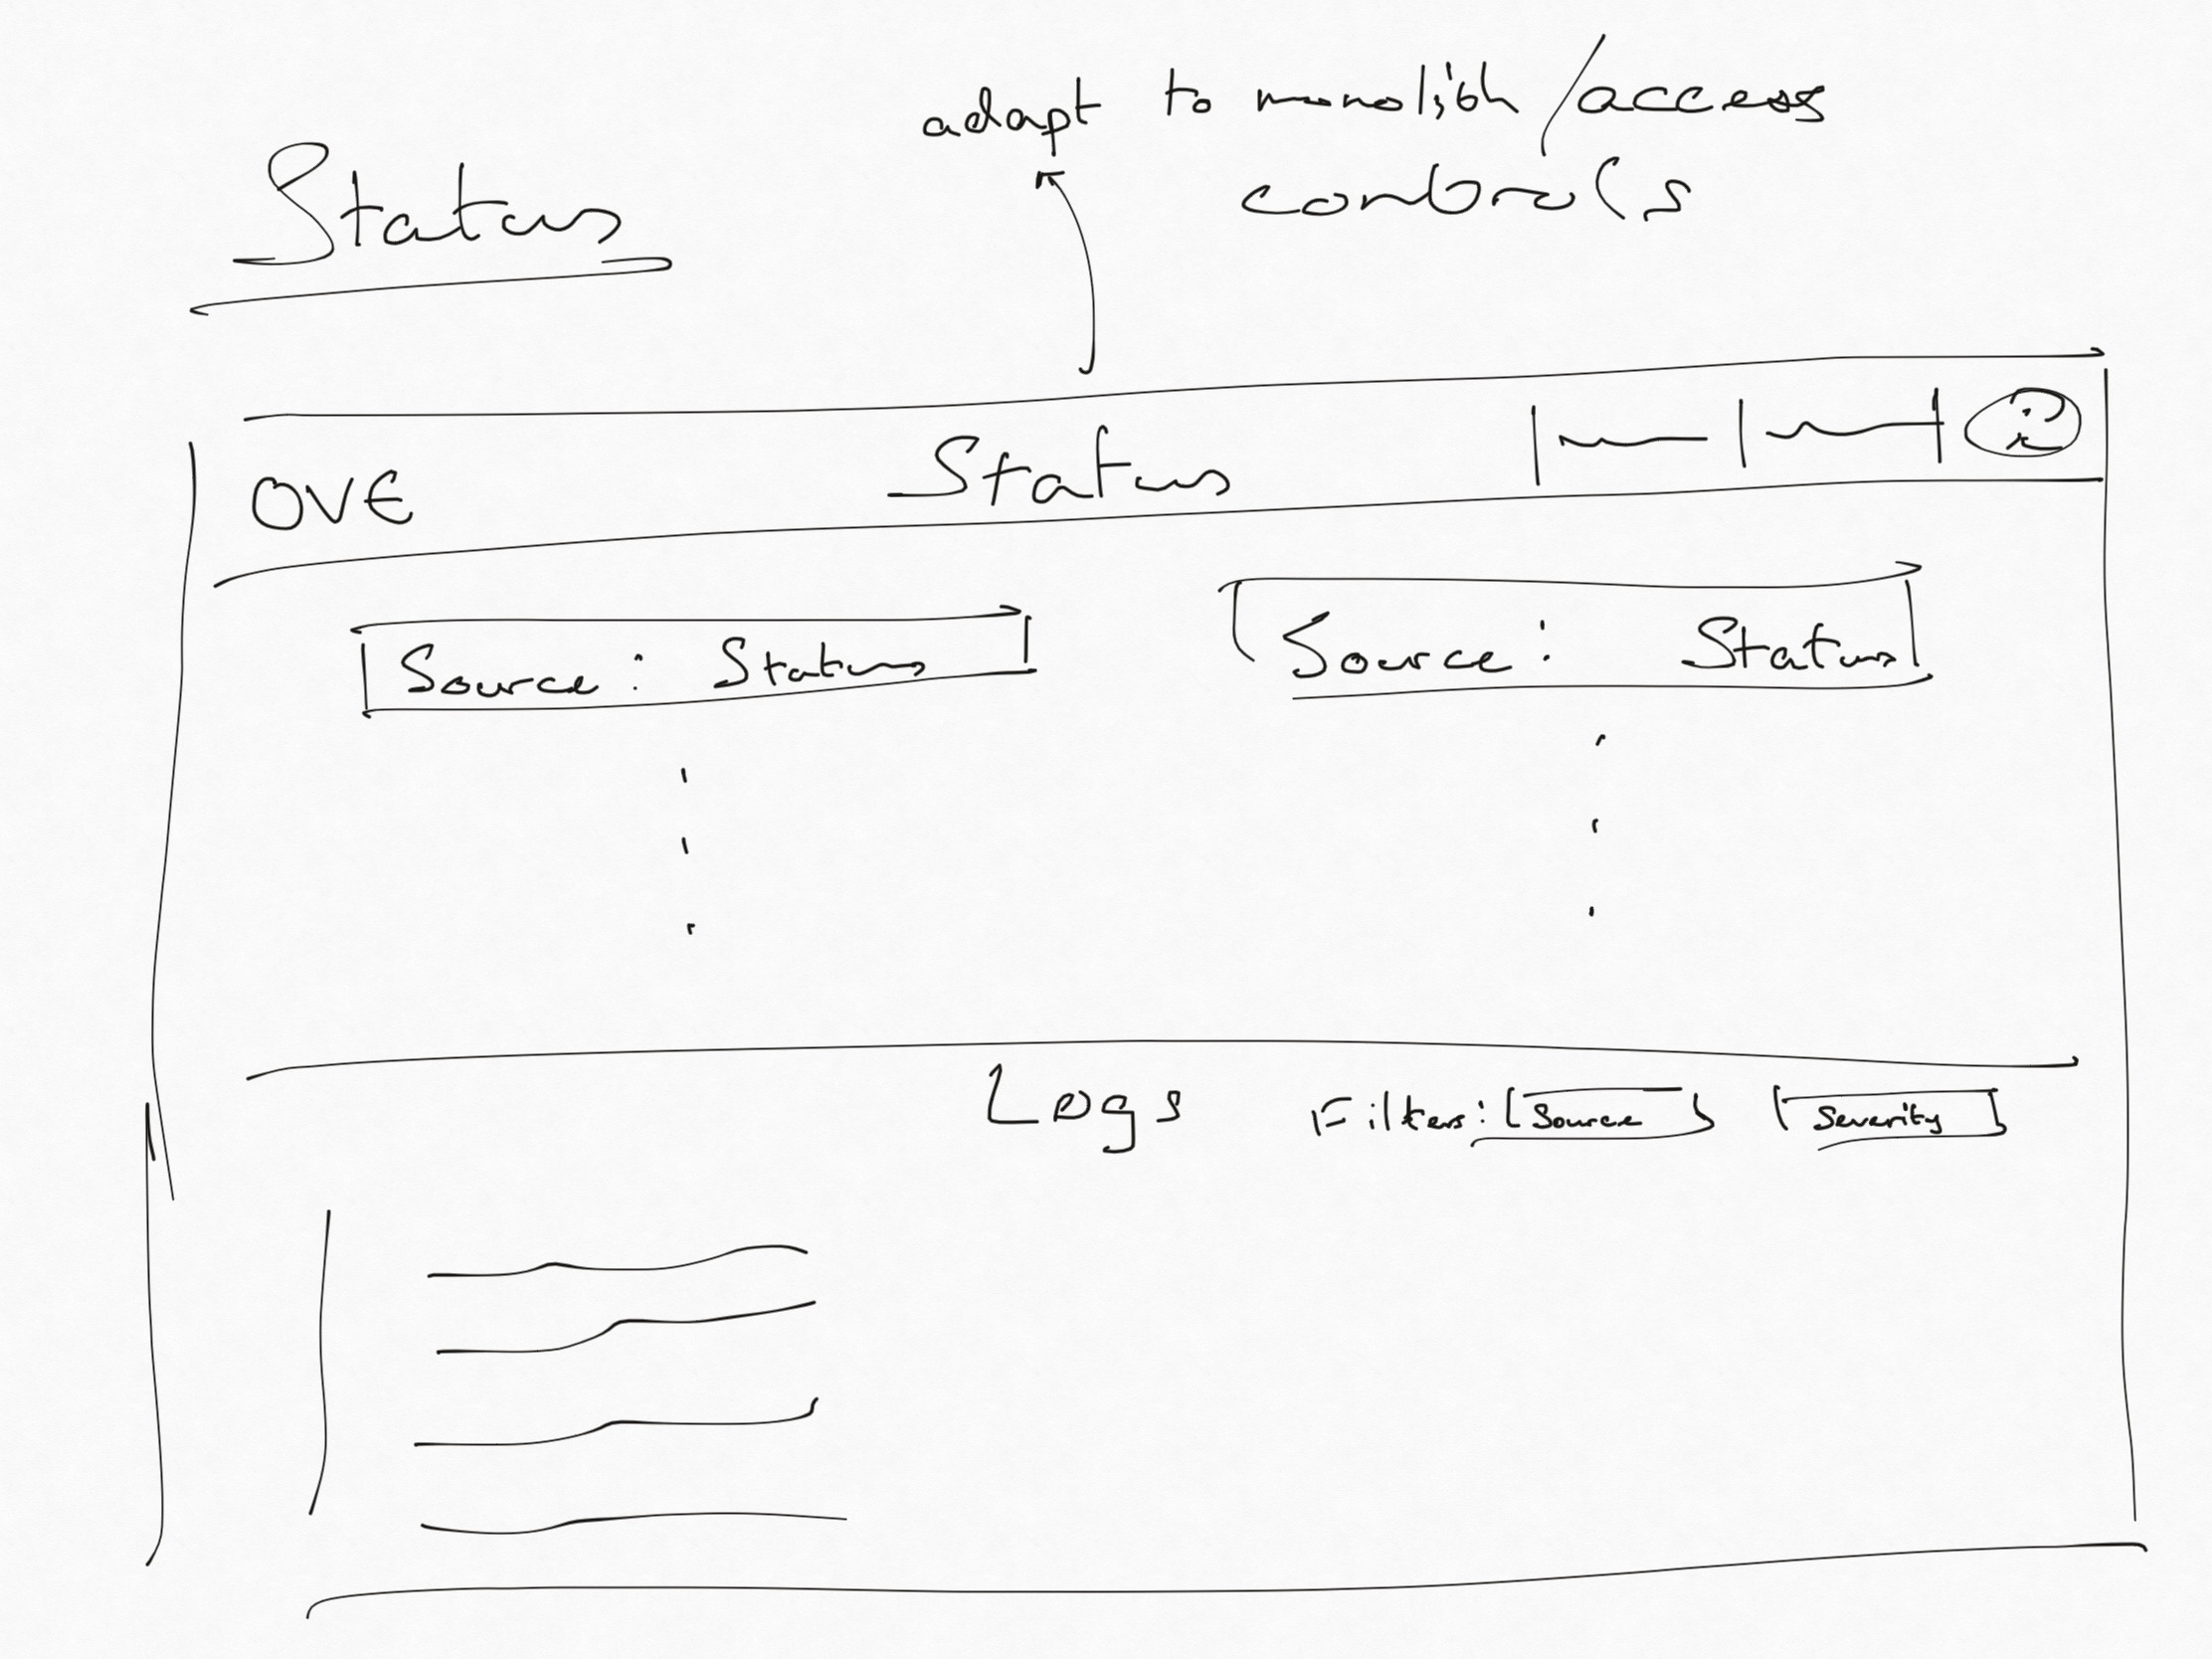 adapt to monolith / access
controls
Status
OVE Status i
Source: Status Source: Status
Logs Filters: [Source] [Severity]